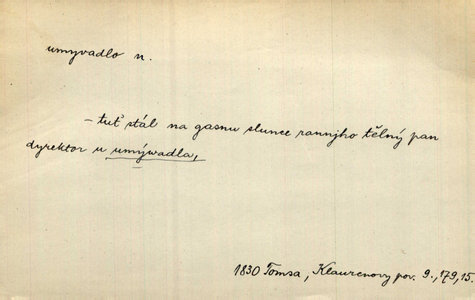 umyvadlo n.
– tuť stál na gasnu slunce rannjho tělný pan
dyrektor u umýwadla,
1830 Tomsa, Klaurenovy pov. 9., 179, 15.